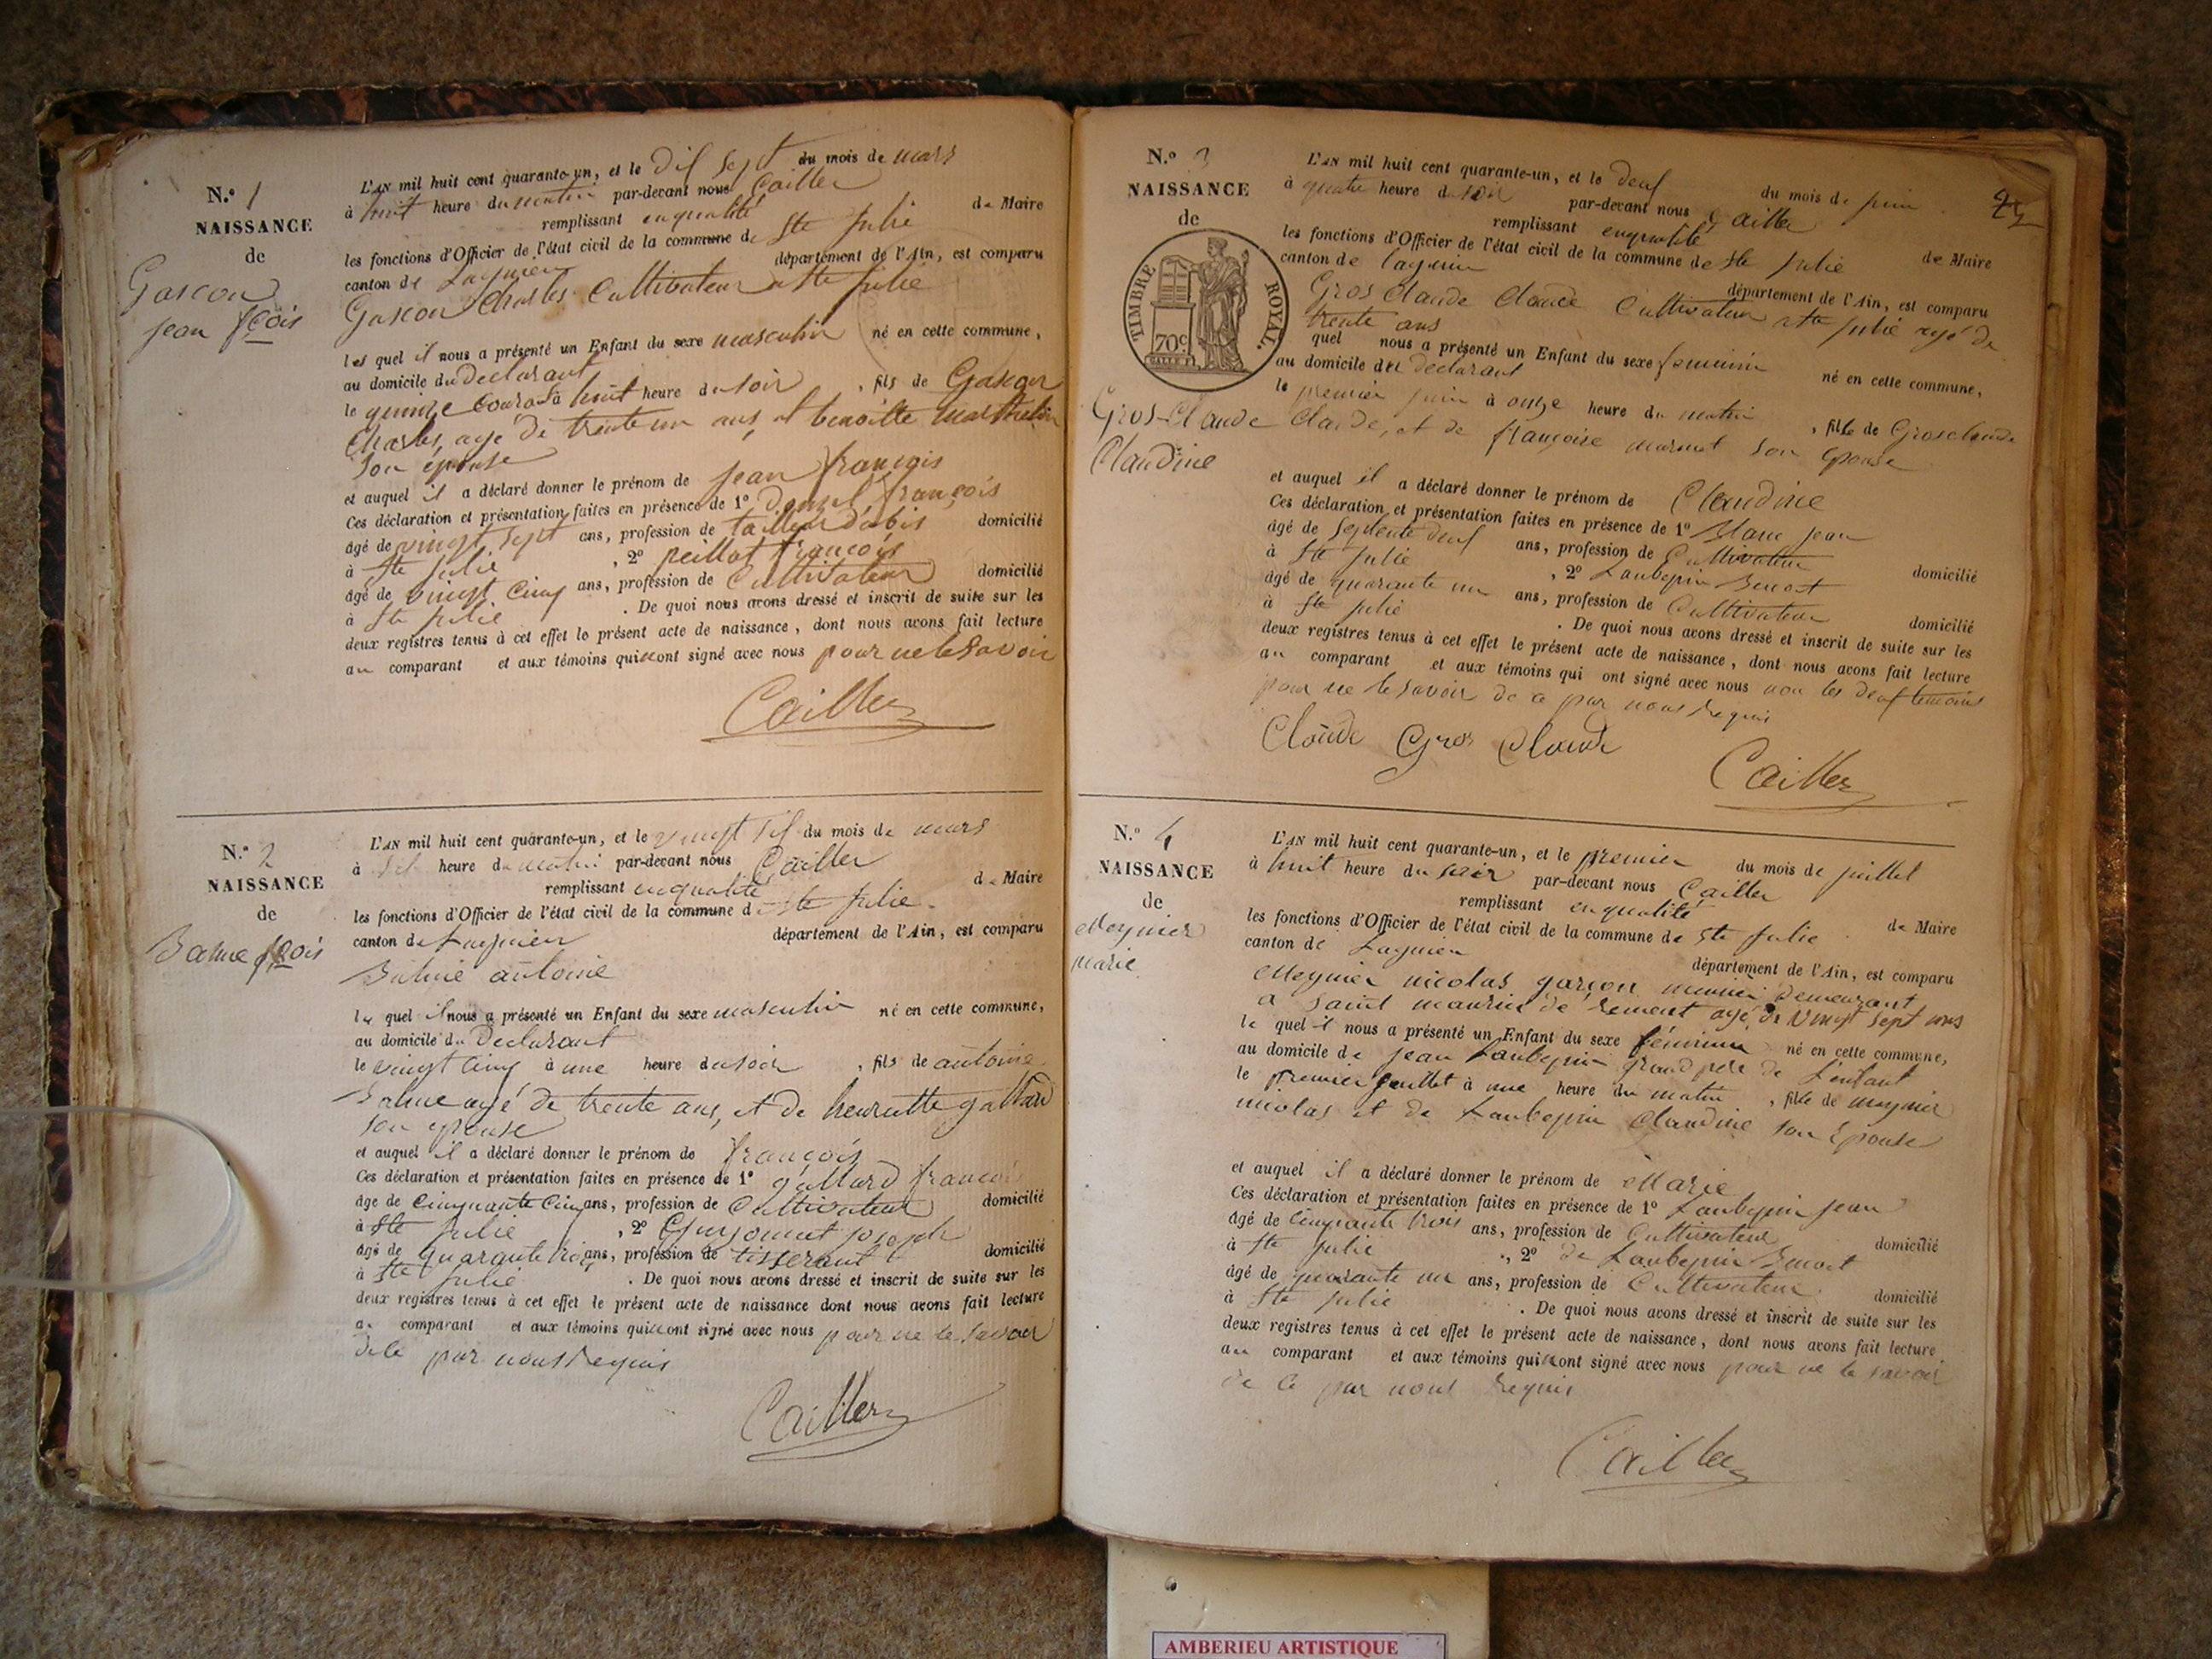 N.º 1
NAISSANCE
de
Gascon
jean fçois
L'AN mil huit cent quarante-un, et le dix sept du mois de mars
à huit heure du matin par-devant nous Cailler
remplissant en qualité de Maire
les fonctions d'Officier de l'état civil de la commune de Ste Julie
canton de Lagnieu département de l'Ain, est comparu
Gascon Charles Cultivateur a Ste Julie
les quel il nous a présenté un Enfant du sexe masculin né en cette commune,
au domicile du Declarant
le quinze Courant à huit heure du soir, fils de Gascon
Charles, agé de trente un ans, et benoitte
son épouse
et auquel il a déclaré donner le prénom de jean françois
Ces déclaration et présentation faites en présence de 1º françois
âgé de vingt sept ans, profession de tailleur d'abis domicilié
à Ste Julie, 2º peillot françois
âgé de vingt cinq ans, profession de Cultivateur domicilié
à Ste Julie. De quoi nous avons dressé et inscrit de suite sur les
deux registres tenus à cet effet le présent acte de naissance, dont nous avons fait lecture
au comparant et aux témoins qui nont signé avec nous pour ne le savoir
Cailler
N.º 2
NAISSANCE
de
Balme fçois
L'AN mil huit cent quarante-un, et le vingt six du mois de mars
à heure du matin par-devant nous Cailler
remplissant en qualité de Maire
les fonctions d'Officier de l'état civil de la commune de Ste Julie
canton de Lagnieu département de l'Ain, est comparu
Balme antoine
le quel il nous a présenté un Enfant du sexe masculin né en cette commune,
au domicile du Declarant
le vingt cinq à une heure du soir, fils de antoine
Balme agé de trente ans, et de henriette gallard
son epouse
et auquel il a déclaré donner le prénom de françois
Ces déclaration et présentation faites en présence de 1º gallard françois
âgé de cinquante cinq ans, profession de Cultivateur domicilié
à Ste Julie, 2º joseph
âgé de quarante trois ans, profession de tisserant domicilié
à Ste Julie. De quoi nous avons dressé et inscrit de suite sur les
deux registres tenus à cet effet le présent acte de naissance dont nous avons fait lecture
au comparant et aux témoins qui nont signé avec nous pour ne le savoir
de ce par nous requis
Cailler
N.º 3
NAISSANCE
de
TIMBRE ROYAL.
70c
Gros-Claude
Claudine
L'AN mil huit cent quarante-un, et le deux du mois de juin
à quatre heure du soir par-devant nous Cailler
remplissant en qualité de Maire
les fonctions d'Officier de l'état civil de la commune de Ste Julie
canton de lagnieu département de l'Ain, est comparu
Gros Claude Claude Cultivateur a Ste Julie agé de
trente ans
quel nous a présenté un Enfant du sexe feminin né en cette commune,
au domicile du declarant
le premier juin à onze heure du matin, fille de Grosclaude
Claude, et de françoise marmet son Epouse
et auquel il a déclaré donner le prénom de Claudine
Ces déclaration et présentation faites en présence de 1º Blanc jean
âgé de septente deux ans, profession de Cultivateur domicilié
à Ste Julie, 2º Laubepin Benoit
âgé de quarante un ans, profession de Cultivateur domicilié
à Ste Julie. De quoi nous avons dressé et inscrit de suite sur les
deux registres tenus à cet effet le présent acte de naissance, dont nous avons fait lecture
au comparant et aux témoins qui ont signé avec nous non les deux temoins
pour ne le savoir de ce par nous requis
Claude Gros Claude
Cailler
N.º 4
NAISSANCE
de
Meynier
Marie
L'AN mil huit cent quarante-un, et le premier du mois de juillet
à huit heure du soir par-devant nous Cailler
remplissant en qualité de Maire
les fonctions d'Officier de l'état civil de la commune de Ste Julie
canton de Lagnieu département de l'Ain, est comparu
Meynier nicolas garçon meunier demeurant
a saint maurice de rement agé de vingt sept ans
le quel il nous a présenté un Enfant du sexe féminin né en cette commune,
au domicile de jean Laubepin grand pere de L'enfant
le premier juillet à une heure du matin, fille de meynier
nicolas et de Laubepin Claudine son Epouse
et auquel il a déclaré donner le prénom de Marie
Ces déclaration et présentation faites en présence de 1º Laubepin jean
âgé de cinquante trois ans, profession de Cultivateur domicilié
à Ste Julie, 2º de Laubepin Benoit
âgé de quarante un ans, profession de Cultivateur domicilié
à Ste Julie. De quoi nous avons dressé et inscrit de suite sur les
deux registres tenus à cet effet le présent acte de naissance, dont nous avons fait lecture
au comparant et aux témoins qui nont signé avec nous pour ne le savoir
de ce par nous requis
Cailler
AMBERIEU ARTISTIQUE